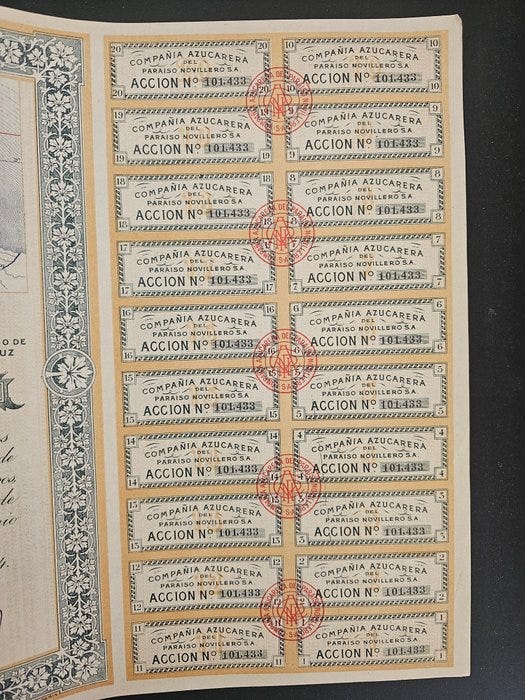 20 20
COMPAÑIA AZUCARERA
DEL
PARAISO NOVILLERO S.A
ACCION Nº 101.433
20 20
10 10
COMPAÑIA AZUCARERA
DEL
PARAISO NOVILLERO S.A
ACCION Nº 101.433
10 10
19 19
COMPAÑIA AZUCARERA
DEL
PARAISO NOVILLERO S.A
ACCION Nº 101.433
19 19
9 9
COMPAÑIA AZUCARERA
DEL
PARAISO NOVILLERO S.A
ACCION Nº 101.433
9 9
18 18
COMPAÑIA AZUCARERA
DEL
PARAISO NOVILLERO S.A
ACCION Nº 101.433
18 18
8 8
COMPAÑIA AZUCARERA
DEL
PARAISO NOVILLERO S.A
ACCION Nº 101.433
8 8
17 17
COMPAÑIA AZUCARERA
DEL
PARAISO NOVILLERO S.A
ACCION Nº 101.433
17 17
7 7
COMPAÑIA AZUCARERA
DEL
PARAISO NOVILLERO S.A
ACCION Nº 101.433
7 7
16 16
COMPAÑIA AZUCARERA
DEL
PARAISO NOVILLERO S.A
ACCION Nº 101.433
16 16
6 6
COMPAÑIA AZUCARERA
DEL
PARAISO NOVILLERO S.A
ACCION Nº 101.433
6 6
O DE
UZ
15 15
COMPAÑIA AZUCARERA
DEL
PARAISO NOVILLERO S.A
ACCION Nº 101.433
15 15
5 5
COMPAÑIA AZUCARERA
DEL
PARAISO NOVILLERO S.A
ACCION Nº 101.433
5 5
14 14
COMPAÑIA AZUCARERA
DEL
PARAISO NOVILLERO S.A
ACCION Nº 101.433
14 14
4 4
COMPAÑIA AZUCARERA
DEL
PARAISO NOVILLERO S.A
ACCION Nº 101.433
4 4
13 13
COMPAÑIA AZUCARERA
DEL
PARAISO NOVILLERO S.A
ACCION Nº 101.433
13 13
3 3
COMPAÑIA AZUCARERA
DEL
PARAISO NOVILLERO S.A
ACCION Nº 101.433
3 3
12 12
COMPAÑIA AZUCARERA
DEL
PARAISO NOVILLERO S.A
ACCION Nº 101.433
12 12
2 2
COMPAÑIA AZUCARERA
DEL
PARAISO NOVILLERO S.A
ACCION Nº 101.433
2 2
11 11
COMPAÑIA AZUCARERA
DEL
PARAISO NOVILLERO S.A
ACCION Nº 101.433
11 11
1 1
COMPAÑIA AZUCARERA
DEL
PARAISO NOVILLERO S.A
ACCION Nº 101.433
1 1